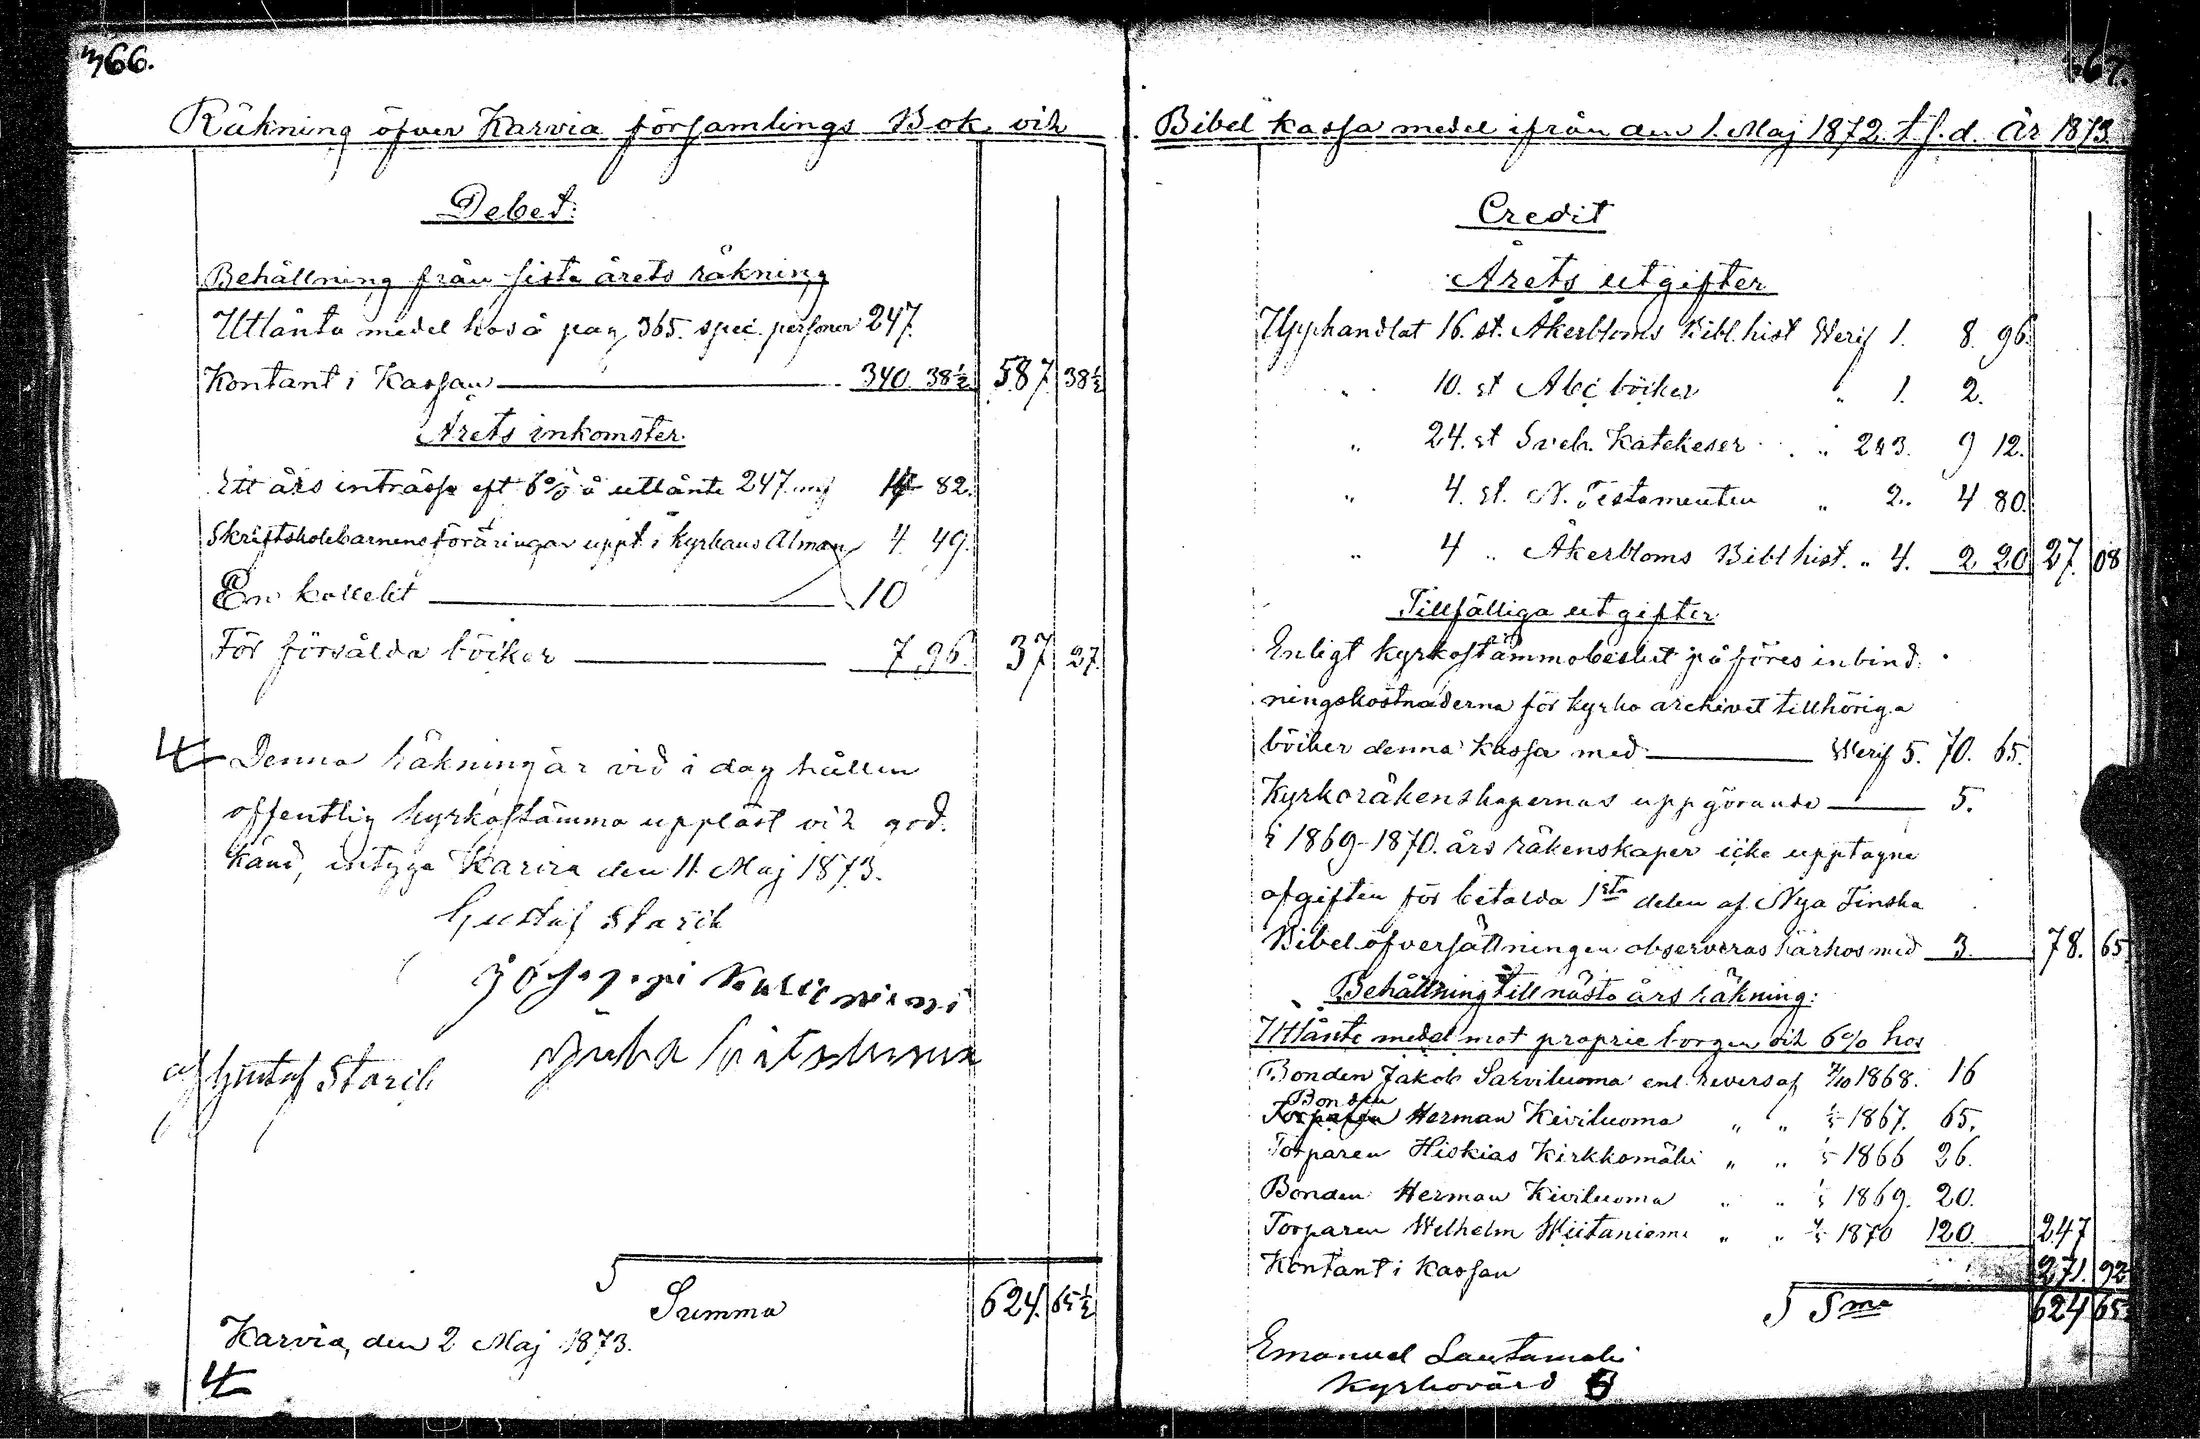 366.
Räkning öfver Karvia församlings Bok och
Debet:
Behållning från sista årets räkning
Utlånta medel hos å pag 365. spec. personer 247.
Kontant i Kassan 340 38½ 587 38½
Årets inkomster.
Ett års inträsse eft 6% å utlånte 247. 14 82.
Skriftskolebarnens föräringar uppt. i kyrkans Alman 4 49.
En kollekt 10
För försålda böcker 7 96. 37 27.
Denna räkning är vid i dag hållen
offentlig kyrkostämma uppläst och god.
känd, intyga Karvia den 11 Maj 1873.
Gustaf Starck
Gustaf Starck
Summa 624. 65½
Karvia, den 2 Maj 1873.
367.
Bibel kassa medel ifrån den 1. Maj 1872 t. s. d. År 1873
Credit
Årets utgifter
Upphandlat 16. st. Åkerbloms Bibl. hist Werif 1. 8. 96.
" 10. st Abc böcker " 1. 2.
" 24. st Sveb. Katekeser " 2 å 3. 9 12.
" 4. st. N. Testamenten " 2. 4 80.
" 4 " Åkerbloms Bibl hist. " 4. 2 20 27. 08
Tillfälliga utgifter
Enligt kyrkostämmobeslut påföres inbind.
ningskostnaderna för kyrko archivet tillhöriga
böcker denna kassa med Werif 5. 70. 65.
Kyrkoräkenskapernas uppgörande 5.
i 1869-1870. års räkenskaper icke upptagne
afgiften för betalda 1sta delen af Nya Finska
Bibelöfversättningen observeras härhos med 3. 78. 65
Behållning till nästa års räkning:
Utlånte medel mot proprie borgen och 6% hos
Bonden Jakob Sarviluoma enl. revers af 1868. 16
Bonden
Torparen Herman Kiviluoma " " 1867. 65.
Torparen Hiskias Kirkkomäki " " 1866 26.
Bonden Herman Kiviluoma " " 1869. 20.
Torparen Wilhelm Wiitaniemi " " 1870 120. 247
Kontant i Kassan 271. 92
Sma 624 65½
Emanuel Lautamäki
Kyrkovärd